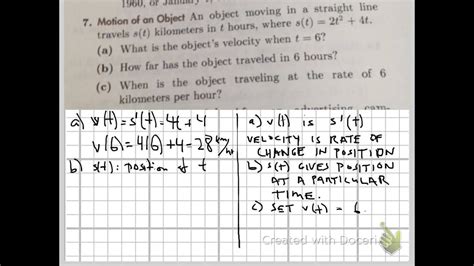 1960, or January 1,
7. Motion of an Object An object moving in a straight line
travels s(t) kilometers in t hours, where s(t) = 2t² + 4t.
(a) What is the object's velocity when t = 6?
(b) How far has the object traveled in 6 hours?
(c) When is the object traveling at the rate of 6
kilometers per hour?
advertising, cam-
a) v(t) = s'(t) = 4t + 4
v(6) = 4(6) + 4 = 28 km/hr
b) s(t): position of t
a) v(t) is s'(t)
VELOCITY IS RATE OF
CHANGE IN POSITION
b) s(t) GIVES POSITION
AT A PARTICULAR
TIME.
c) SET v(t) = 6.
Created with Doceri